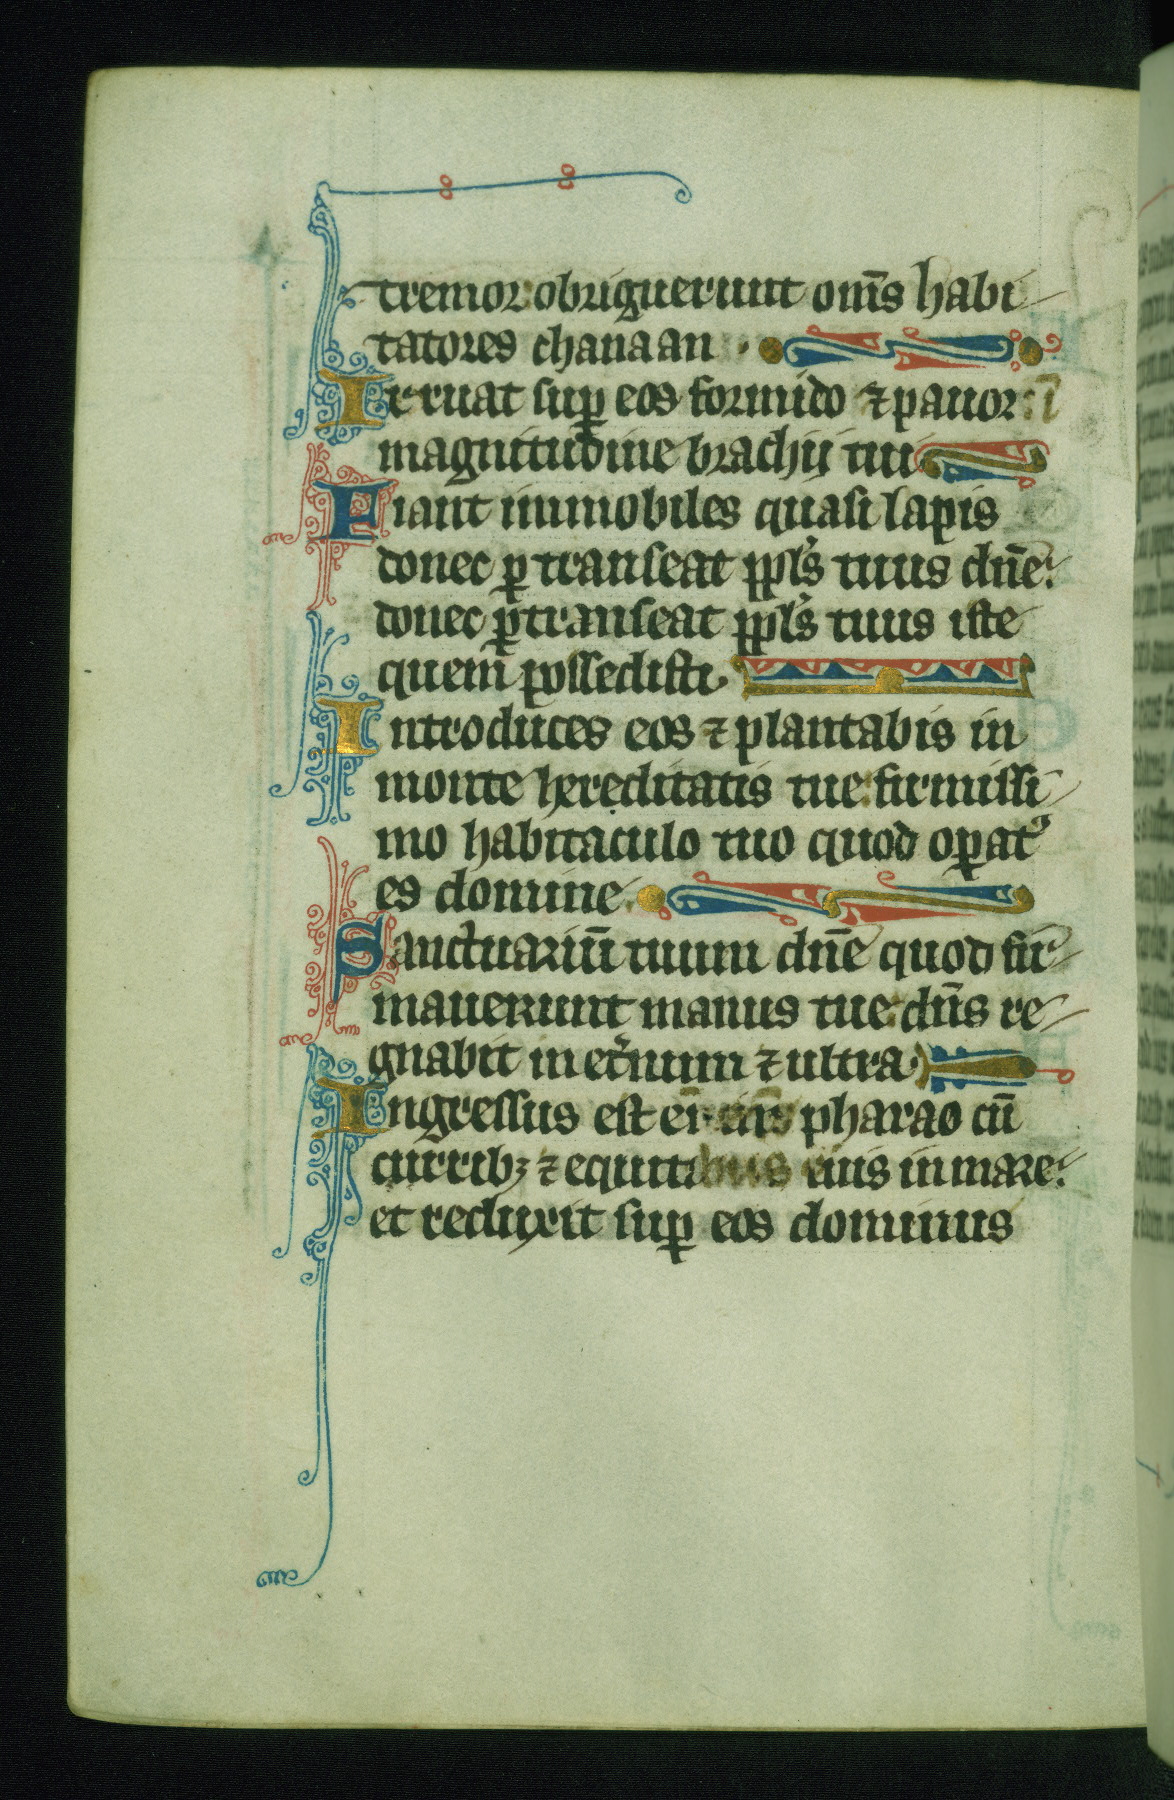 tremor obriguerunt om̄s habi
tatores chanaan ·
Irruat suꝑ eos formido ⁊ pauor: ī
magnitudine brachij tui
Fiant immobiles quasi lapis
donec ꝑtranseat ppl's tuus dn̄e:
donec ꝑtranseat ppl's tuus iste
quem possedisti.
Introduces eos ⁊ plantabis in
monte hereditatis tue: firmissi
mo habitaculo tuo quod oꝑatꝰ
es domine.
Sanctuariū tuum dn̄e quod fir
mauerunt manus tue: dn̄s re
gnabit in et̾num ⁊ ultra.
Ingressus est pharao cū
curribꝫ ⁊ equitibus eius in mare:
et reduxit suꝑ eos dominus